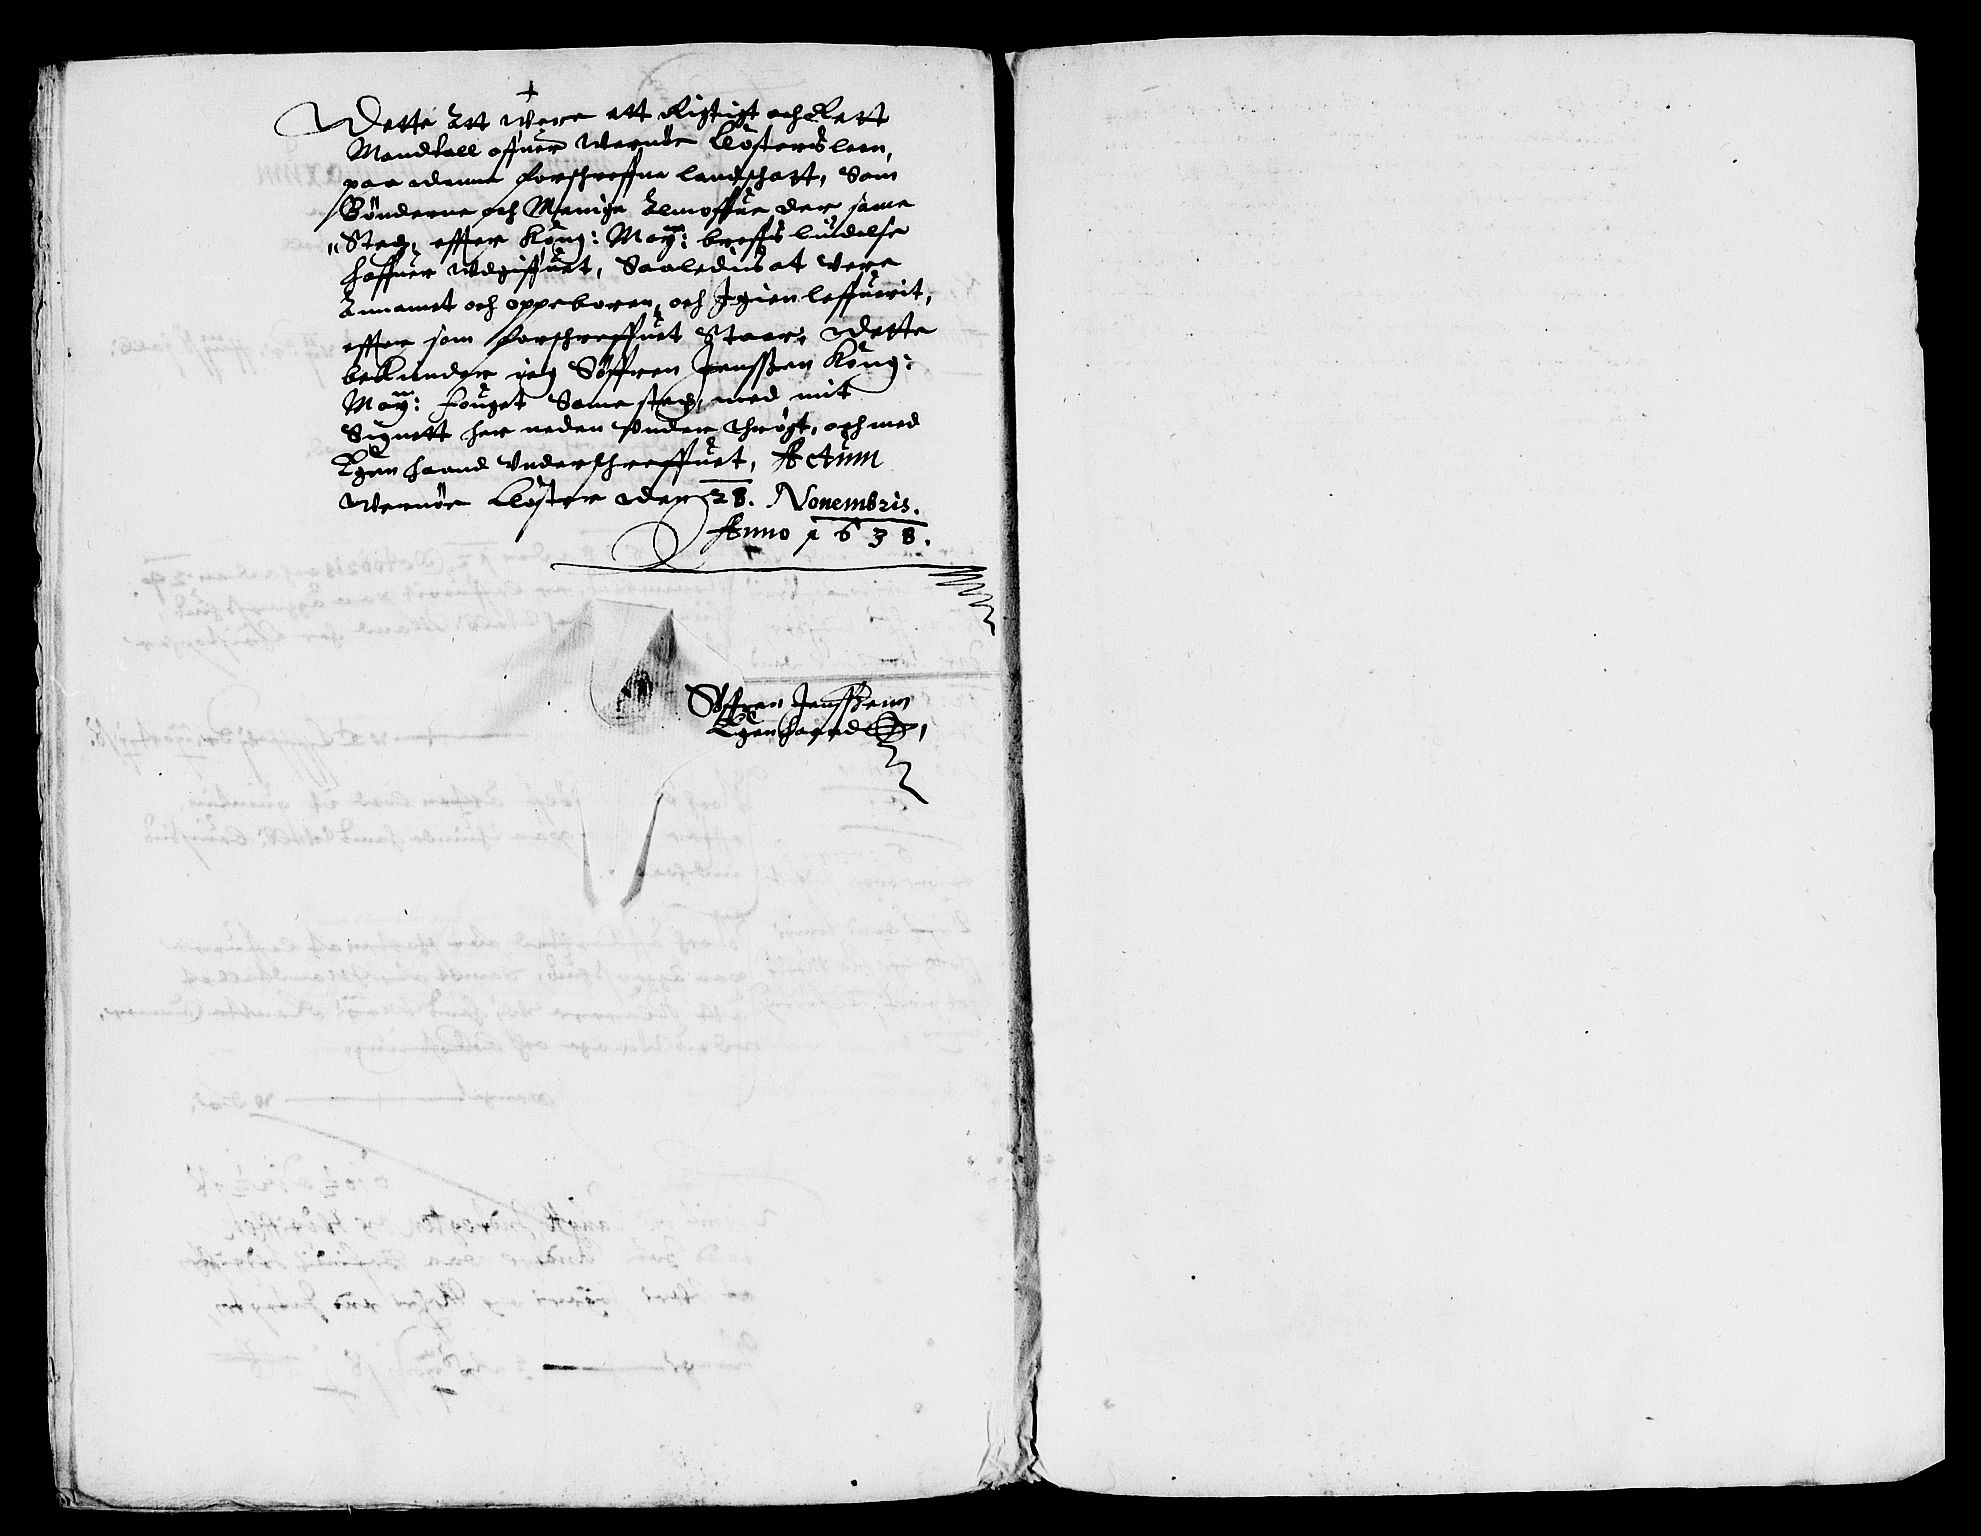 Dette Att Were ett Rigtigt och Rett
Mandtall offuer Wernöe Closters leen,
paa denne forschreffne landschatt, Som
Bönderne och Menige Almoffue der same
Steds, effter Kong: May: breffs liudelse
haffuer Udgiffuet, Saaledius at Vere
Annamet och oppeboren, och Igien leffuerit,
effter som forschreffuet Staar, Dette
bekiender ieg Söffren Jenssen Kong:
May: fouget Same steds, med mit
Signett her neden Under Thrögt, och med
Egen haand Underschreffuet, Actum
Wernöe Closter den 28. Nouembris.
Anno 1638.
Söffren Jenssenn
Egen haand